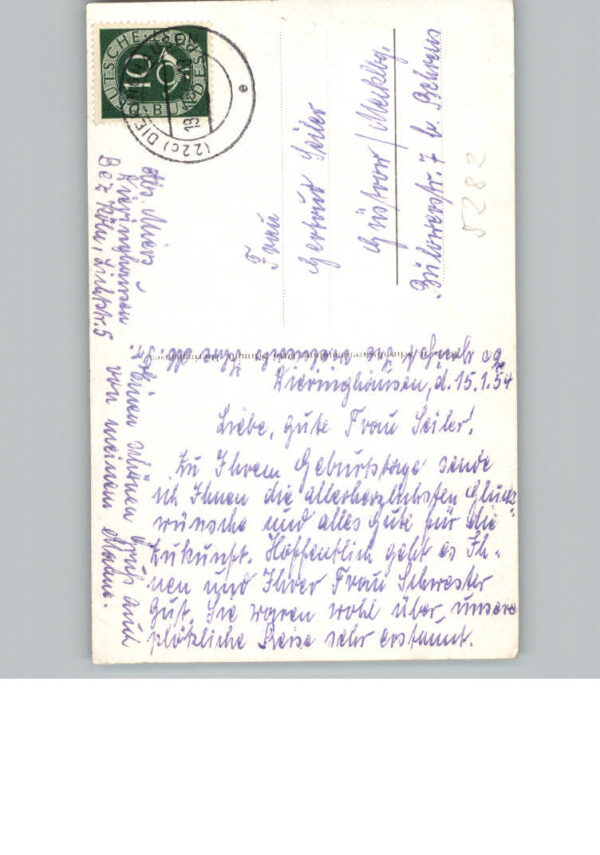 DEUTSCHE
10
BUNDESPOST
(22c) DIE
e
Abs. Miers
Dieringhausen
Bez Köln,
Frau
Gertrud Seiler
Güstrow / Mecklbg.
Bülowerstr. 7 b. Behrens
5282
Dieringhausen, d. 15.1.54
Liebe, gute Frau Seiler!
Zu Ihrem Geburtstage sende
ich Ihnen die allerherzlichsten Glück-
wünsche und alles Gute für die
Zukunft. Hoffentlich geht es Ih-
nen und Ihrer Frau Schwester
gut. Sie waren wohl über unsere
plötzliche Reise sehr erstaunt.
einen schönen Gruß auch
von meinem Manne.